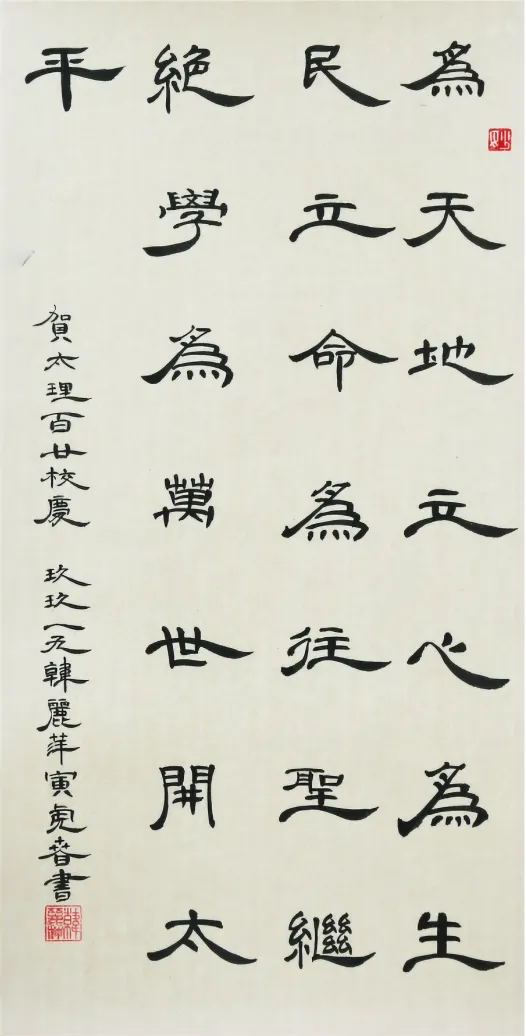 為天地立心為生
民立命為往聖繼
絕學為萬世開太
平
賀太理百廿校慶 玖玖一五韓麗萍寅虎春書